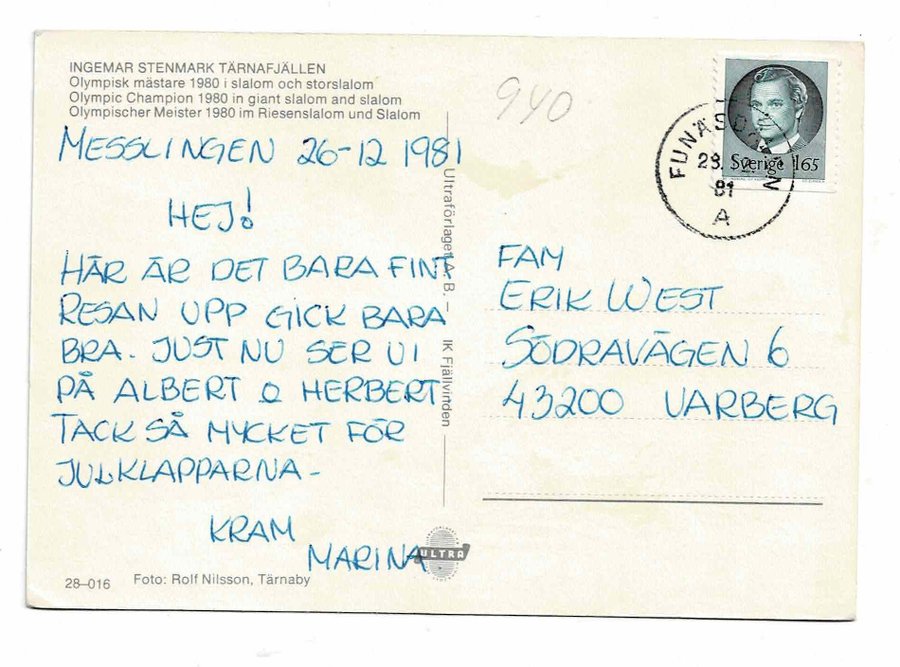 INGEMAR STENMARK TÄRNAFJÄLLEN
Olympisk mästare 1980 i slalom och storslalom
Olympic Champion 1980 in giant slalom and slalom
Olympischer Meister 1980 im Riesenslalom und Slalom
940
MESSLINGEN 26-12 1981
HEJ!
HÄR ÄR DET BARA FINT
RESAN UPP GICK BARA
BRA. JUST NU SER VI
PÅ ALBERT O HERBERT
TACK SÅ MYCKET FÖR
JULKLAPPARNA-
KRAM
MARINA
28–016 Foto: Rolf Nilsson, Tärnaby
Ultraförlaget A.B. – IK Fjällvinden
ULTRA
Sverige 165
81
A
FAM
ERIK WEST
SÖDRAVÄGEN 6
43200 VARBERG